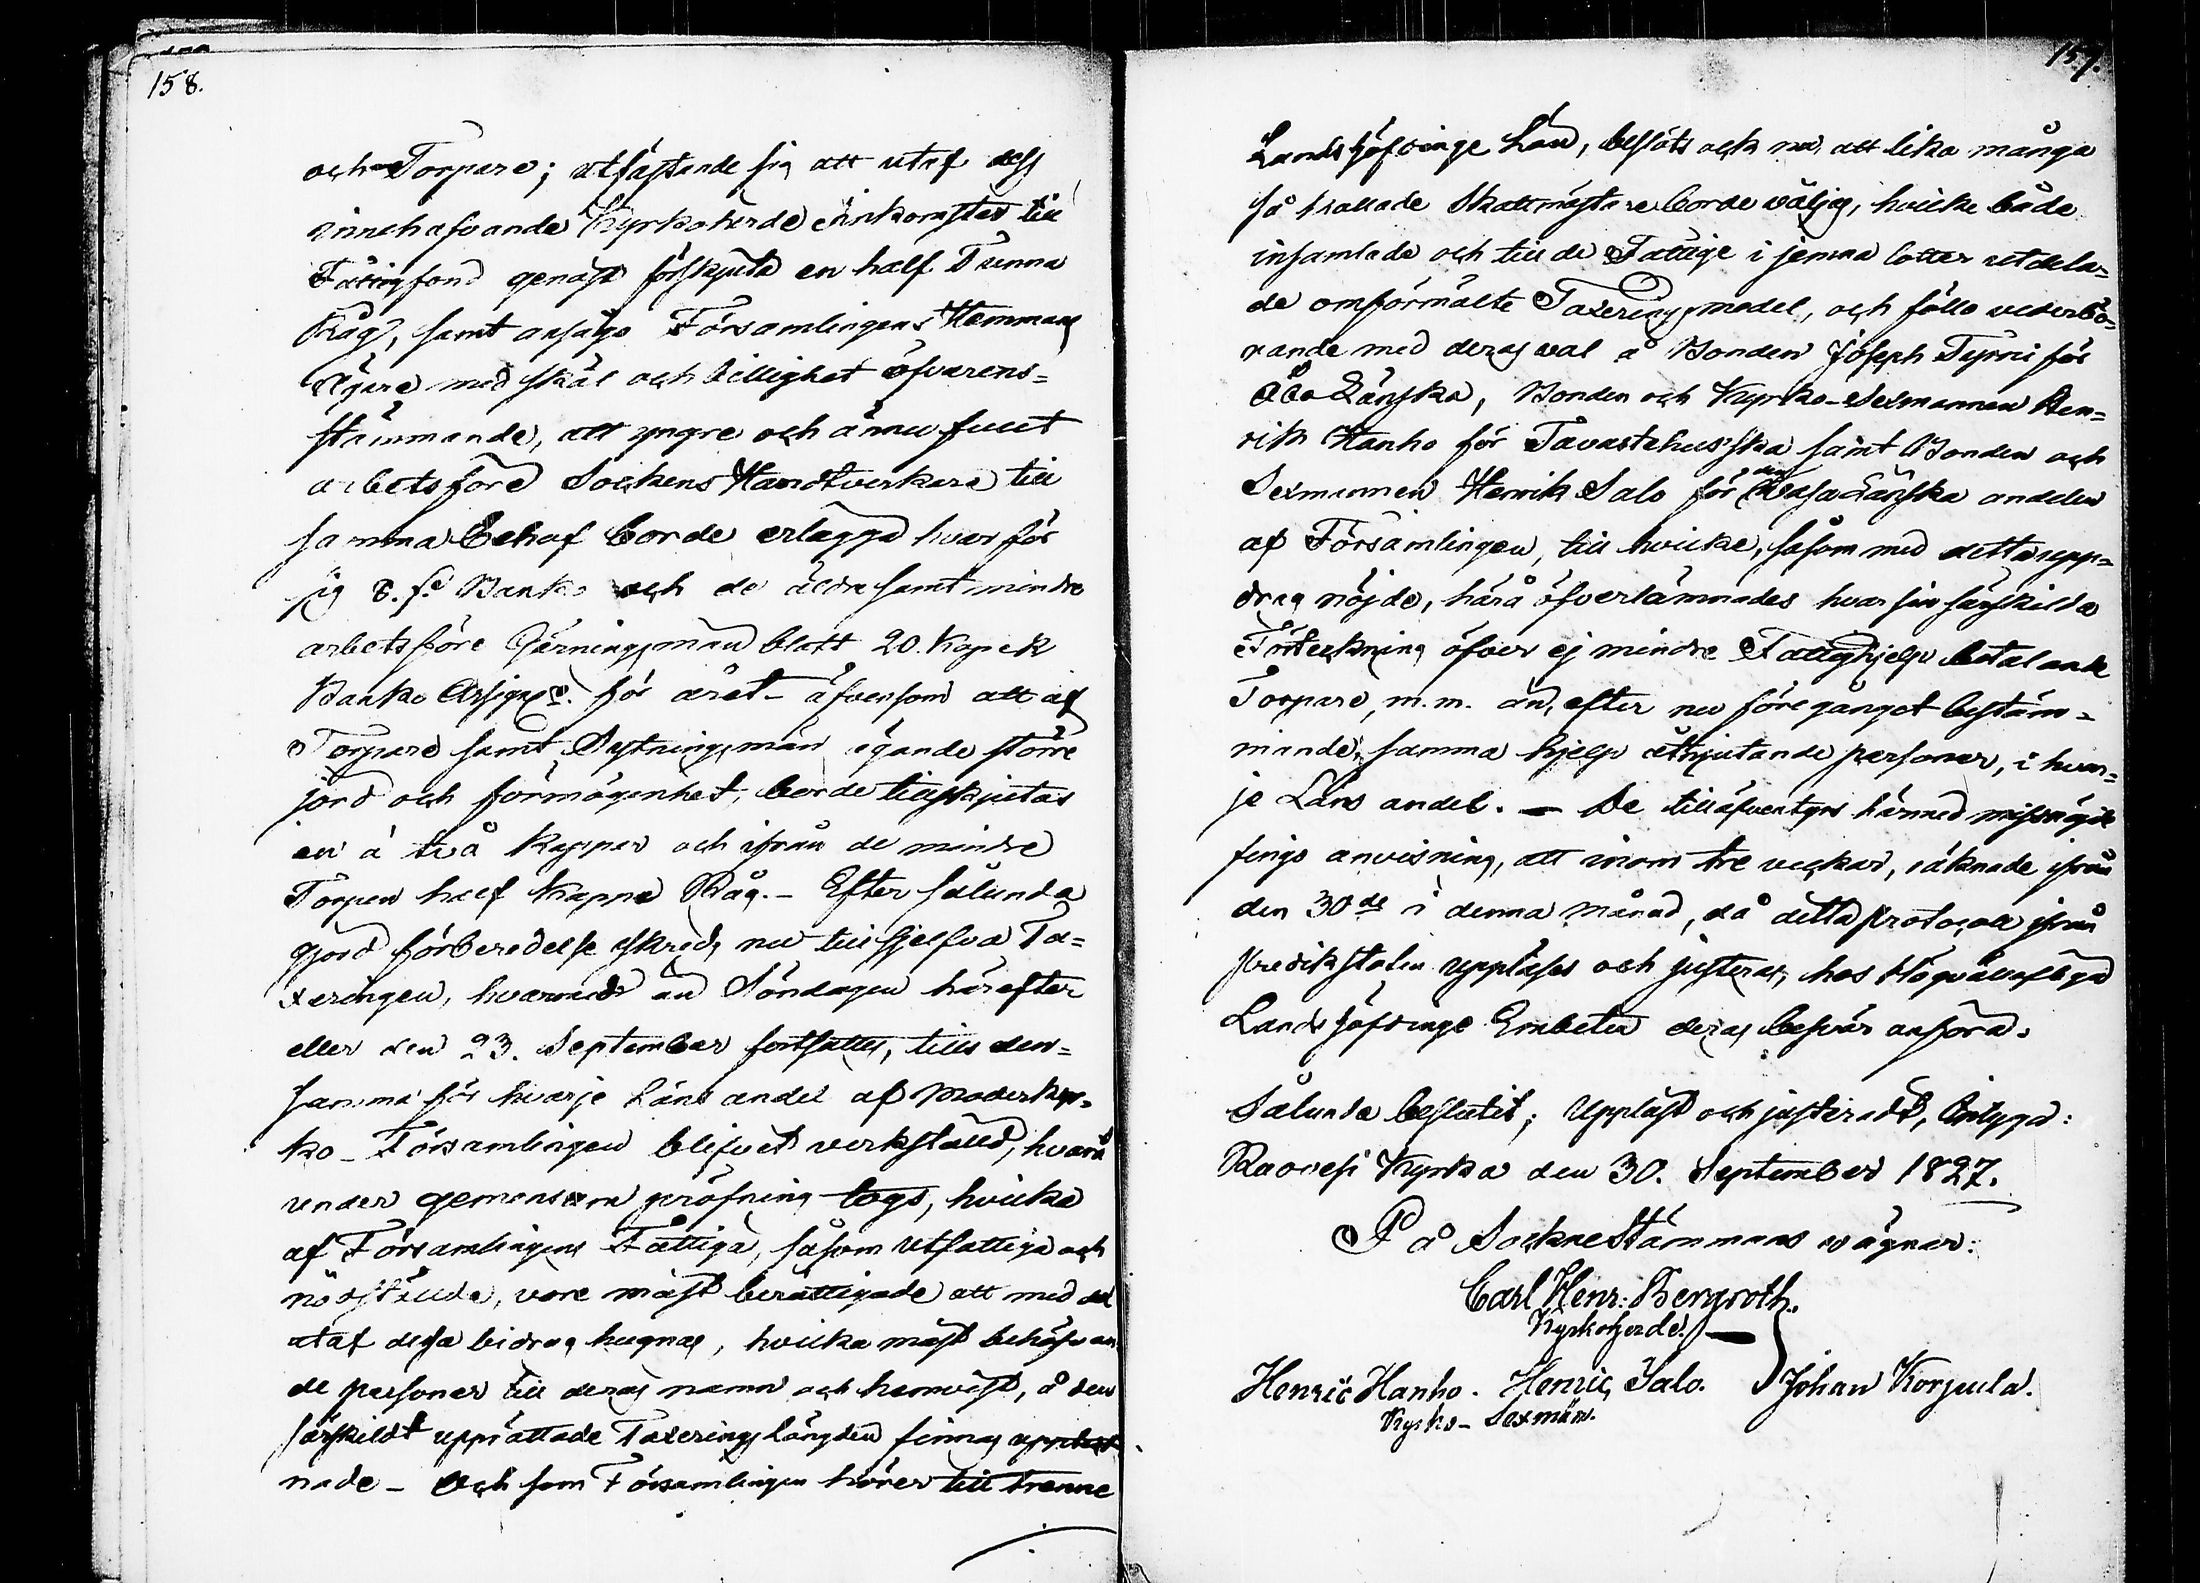 158.
och Torpare; utfästande sig att utaf dess
innehafvande Kyrkoherde inkomster till
Fattigfond genast förskjuta en half Tunna
Råg, samt ansågo Församlingens Hemmans
Ägare med skäl och billighet öfverens=
stämmande, att yngre och ännu fullt
arbetsföre Sockens Handtverkare till
samma behof borde erlägga hvar för
sig Banko och de äldre samt mindre
arbetsföre Gerningsmän blott 20. Kopek
Banko Assign. för året – äfvensom att af
Torpare samt Nystningsmän ägande större
jord och förmögenhet, borde tillskjutas
en à två kappar och ifrån de mindre
Torpen half kappa Råg. – Efter sålunda
gjord förberedelse skreds nu till sjelfva Ta=
xeringen, hvarmed än Söndagen härefter
eller den 23. September fortsattes, tills den=
samma för hvarje Läns andel af Moderkyr=
ko – Församlingen blifvet verkställd, hvarå
under gemensam pröfning togs, hvilka
af Församlingens Fattiga, såsom utfattiga och
nödstälde, vore mäst berättigade att med del
utaf dessa bidrag hugnas, hvilka mäst behöfvan
de personer till deras namn och hemvist, å den
särskildt upprättade Taxerings Längden finnas uppteck
nade – Och som Församlingen hörer till trenne
157.
Landshöfdinge Län, beslöts och nu, att lika många
så kallade Skattmästare borde väljas, hvilke både
insamlade och till de Fattige i jemna lotter utdela=
de omförmälte Taxerings medel, och föllo vederbö=
rande med deras val å Bonden Joseph Tyrni för
Åbo Länska, Bonden och Kyrko-Sexmannen Hen=
rik Hanho för Tavastehusska samt Bonden och
Sexmannen Henrik Salo för den Wasa Länska andelen
af Församlingen, till hvilke, såsom med detta upp=
drag nöjde, härå öfverlämnades hvar sin särskilda
Förteckning öfver ej mindre Fattighjelp betalande
Torpare, m.m. än, efter nu föregånget bestäm=
mande, samma hjelp åtnjutande personer, i hvar=
je Läns andel. – De tilläfventyrs härmed missnöjde
fingo anvisning, att inom tre veckor, räknade ifrån
den 30de i denna månad, då detta protocoll ifrån
predikstolen uppläses och justeras, hos Högvällofliga
Landshöfdinge Embeten deras besvär anföra.
Sålunda beslutit; Uppläst och justeradt, Intyga:
Raovesi Kyrka den 30. September 1827.
På Sockne Stämmans vägnar:
Carl Henr: Bergroth.
Kyrkoherde.
Henric Hanho. Henric Salo. Johan Korpula.
Kyrko – Sexmän.